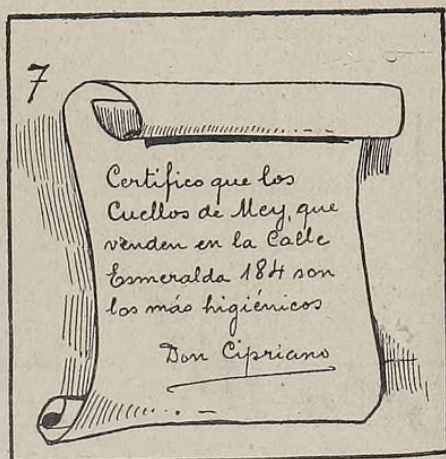 7
Certifico que los
Cuellos de Mey, que
venden en la Calle
Esmeralda 184 son
los más higiénicos
Don Cipriano